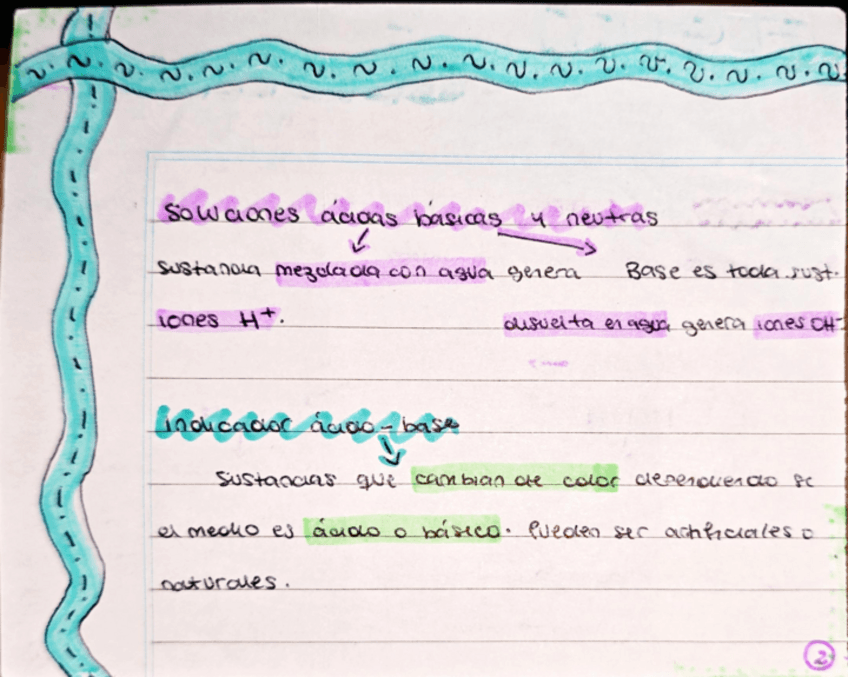 Soluciones ácidas básicas y neutras
sustancia mezclada con agua genera Base es toda sust.
iones H+. disuelta en agua genera iones OH-
indicador ácido-base
Sustancias que cambian de color dependiendo sí
el medio es ácido o básico. Pueden ser artificiales o
naturales.
2